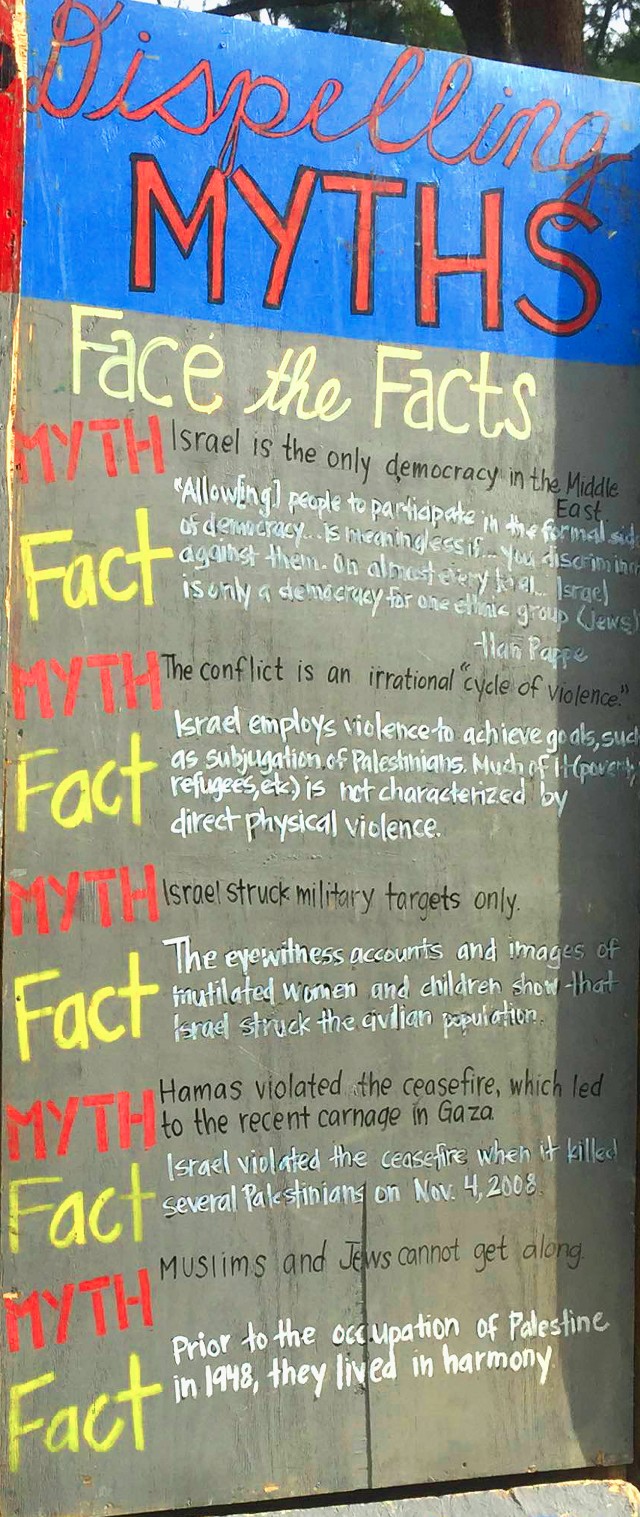 Dispelling
MYTHS
Face the Facts
MYTH Israel is the only democracy in the Middle
East
Fact "Allow[ing] people to participate in the formal side
of democracy... is meaningless if... you discriminate
against them. On almost every level... Israel
is only a democracy for one ethnic group (Jews)
-Ilan Pappe
MYTH The conflict is an irrational "cycle of violence."
Fact Israel employs violence to achieve goals, such
as subjugation of Palestinians. Much of it (poverty,
refugees, etc) is not characterized by
direct physical violence.
MYTH Israel struck military targets only.
Fact The eyewitness accounts and images of
mutilated women and children show that
Israel struck the civilian population.
MYTH Hamas violated the ceasefire, which led
to the recent carnage in Gaza
Fact Israel violated the ceasefire when it killed
several Palestinians on Nov. 4, 2008
MYTH Muslims and Jews cannot get along.
Fact Prior to the occupation of Palestine
in 1948, they lived in harmony